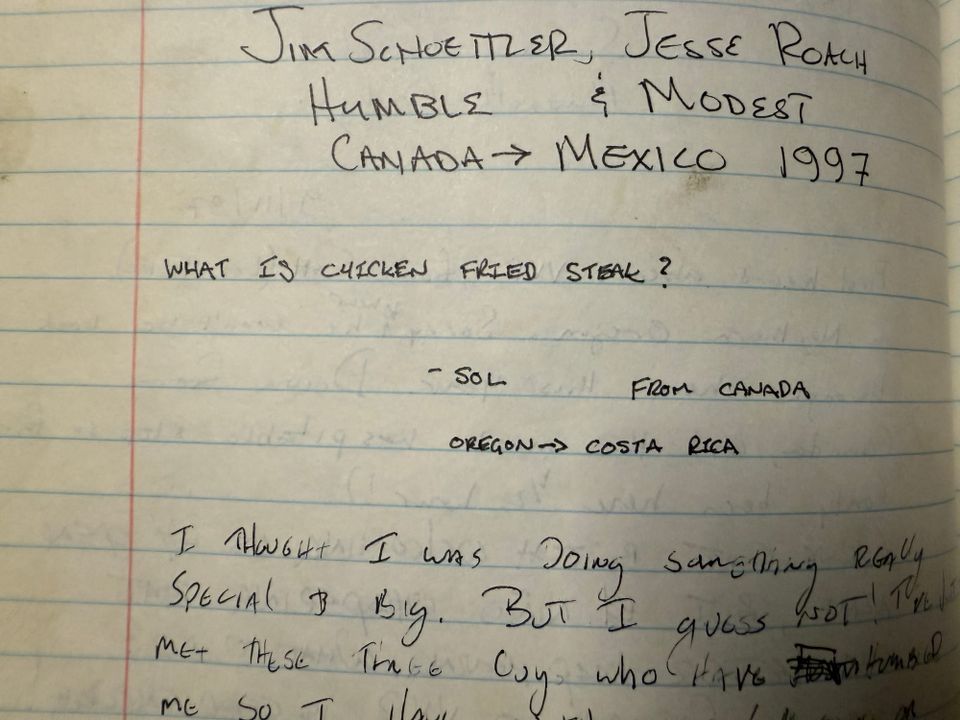 JIM SCHOETTLER, JESSE ROACH
HUMBLE & MODEST
CANADA → MEXICO 1997
WHAT IS CHICKEN FRIED STEAK?
- SOL FROM CANADA
OREGON → COSTA RICA
I THOUGHT I WAS DOING SOMETHING REALLY
SPECIAL & BIG. BUT I GUESS NOT! I'VE
MET THESE THREE GUY WHO HAVE HUMBLED
ME SO I HAVE